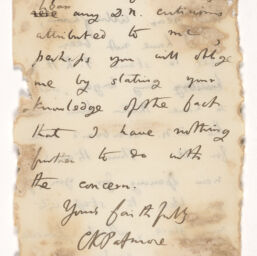 any D.N. criticisms
attributed to me,
perhaps you will oblige
me by stating your
knowledge of the fact
that I have nothing
further to do with
the concern.
Yours faithfully
CKPatmore